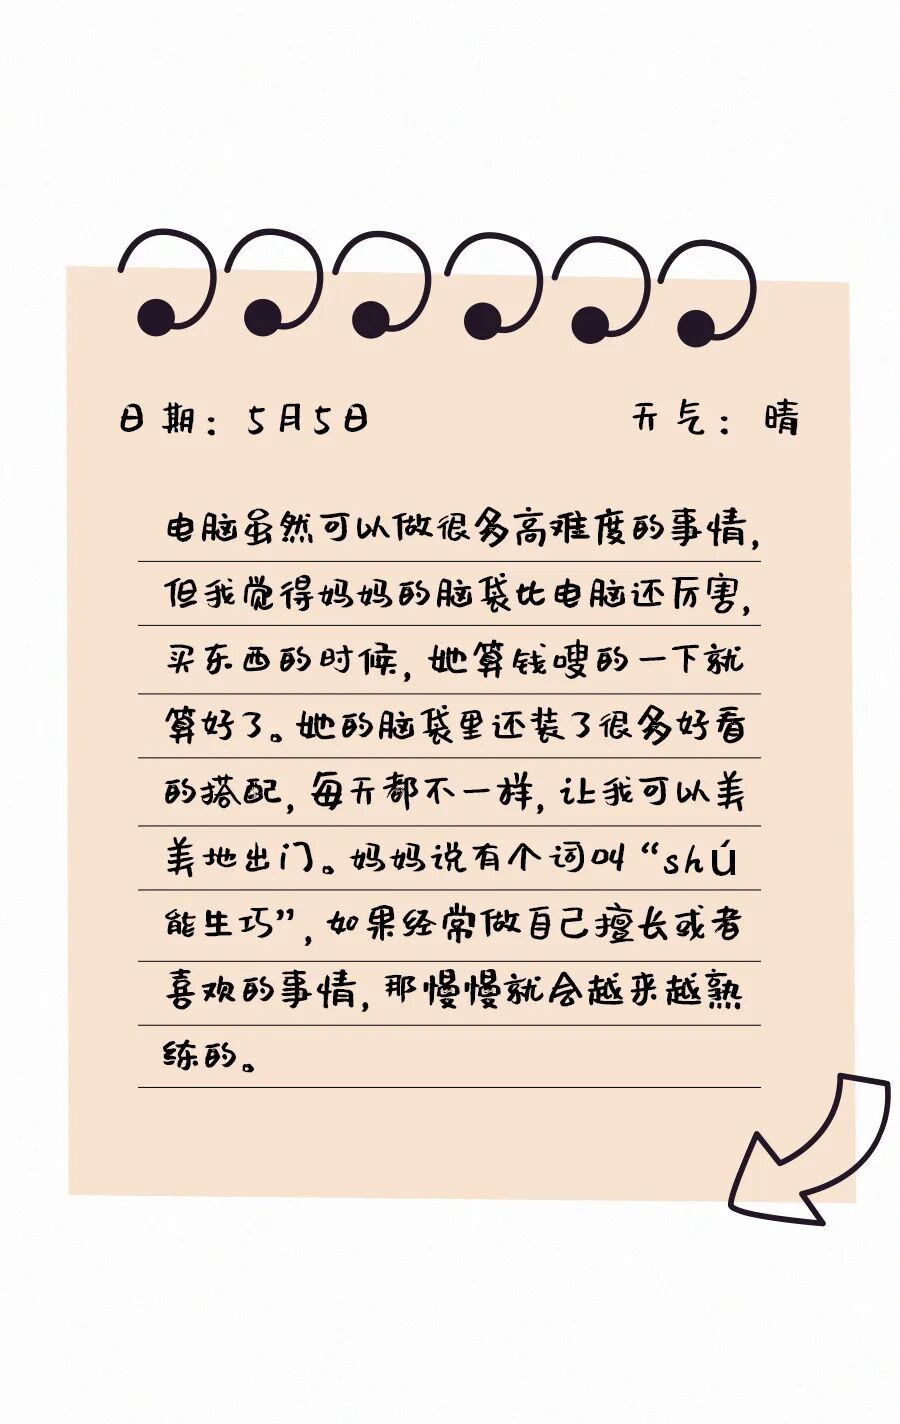 日期：5月5日 天气：晴
电脑虽然可以做很多高难度的事情，
但我觉得妈妈的脑袋比电脑还厉害，
买东西的时候，她算钱嗖的一下就
算好了。她的脑袋里还装了很多好看
的搭配，每天都不一样，让我可以美
美地出门。妈妈说有个词叫“shú
能生巧”，如果经常做自己擅长或者
喜欢的事情，那慢慢就会越来越熟
练的。